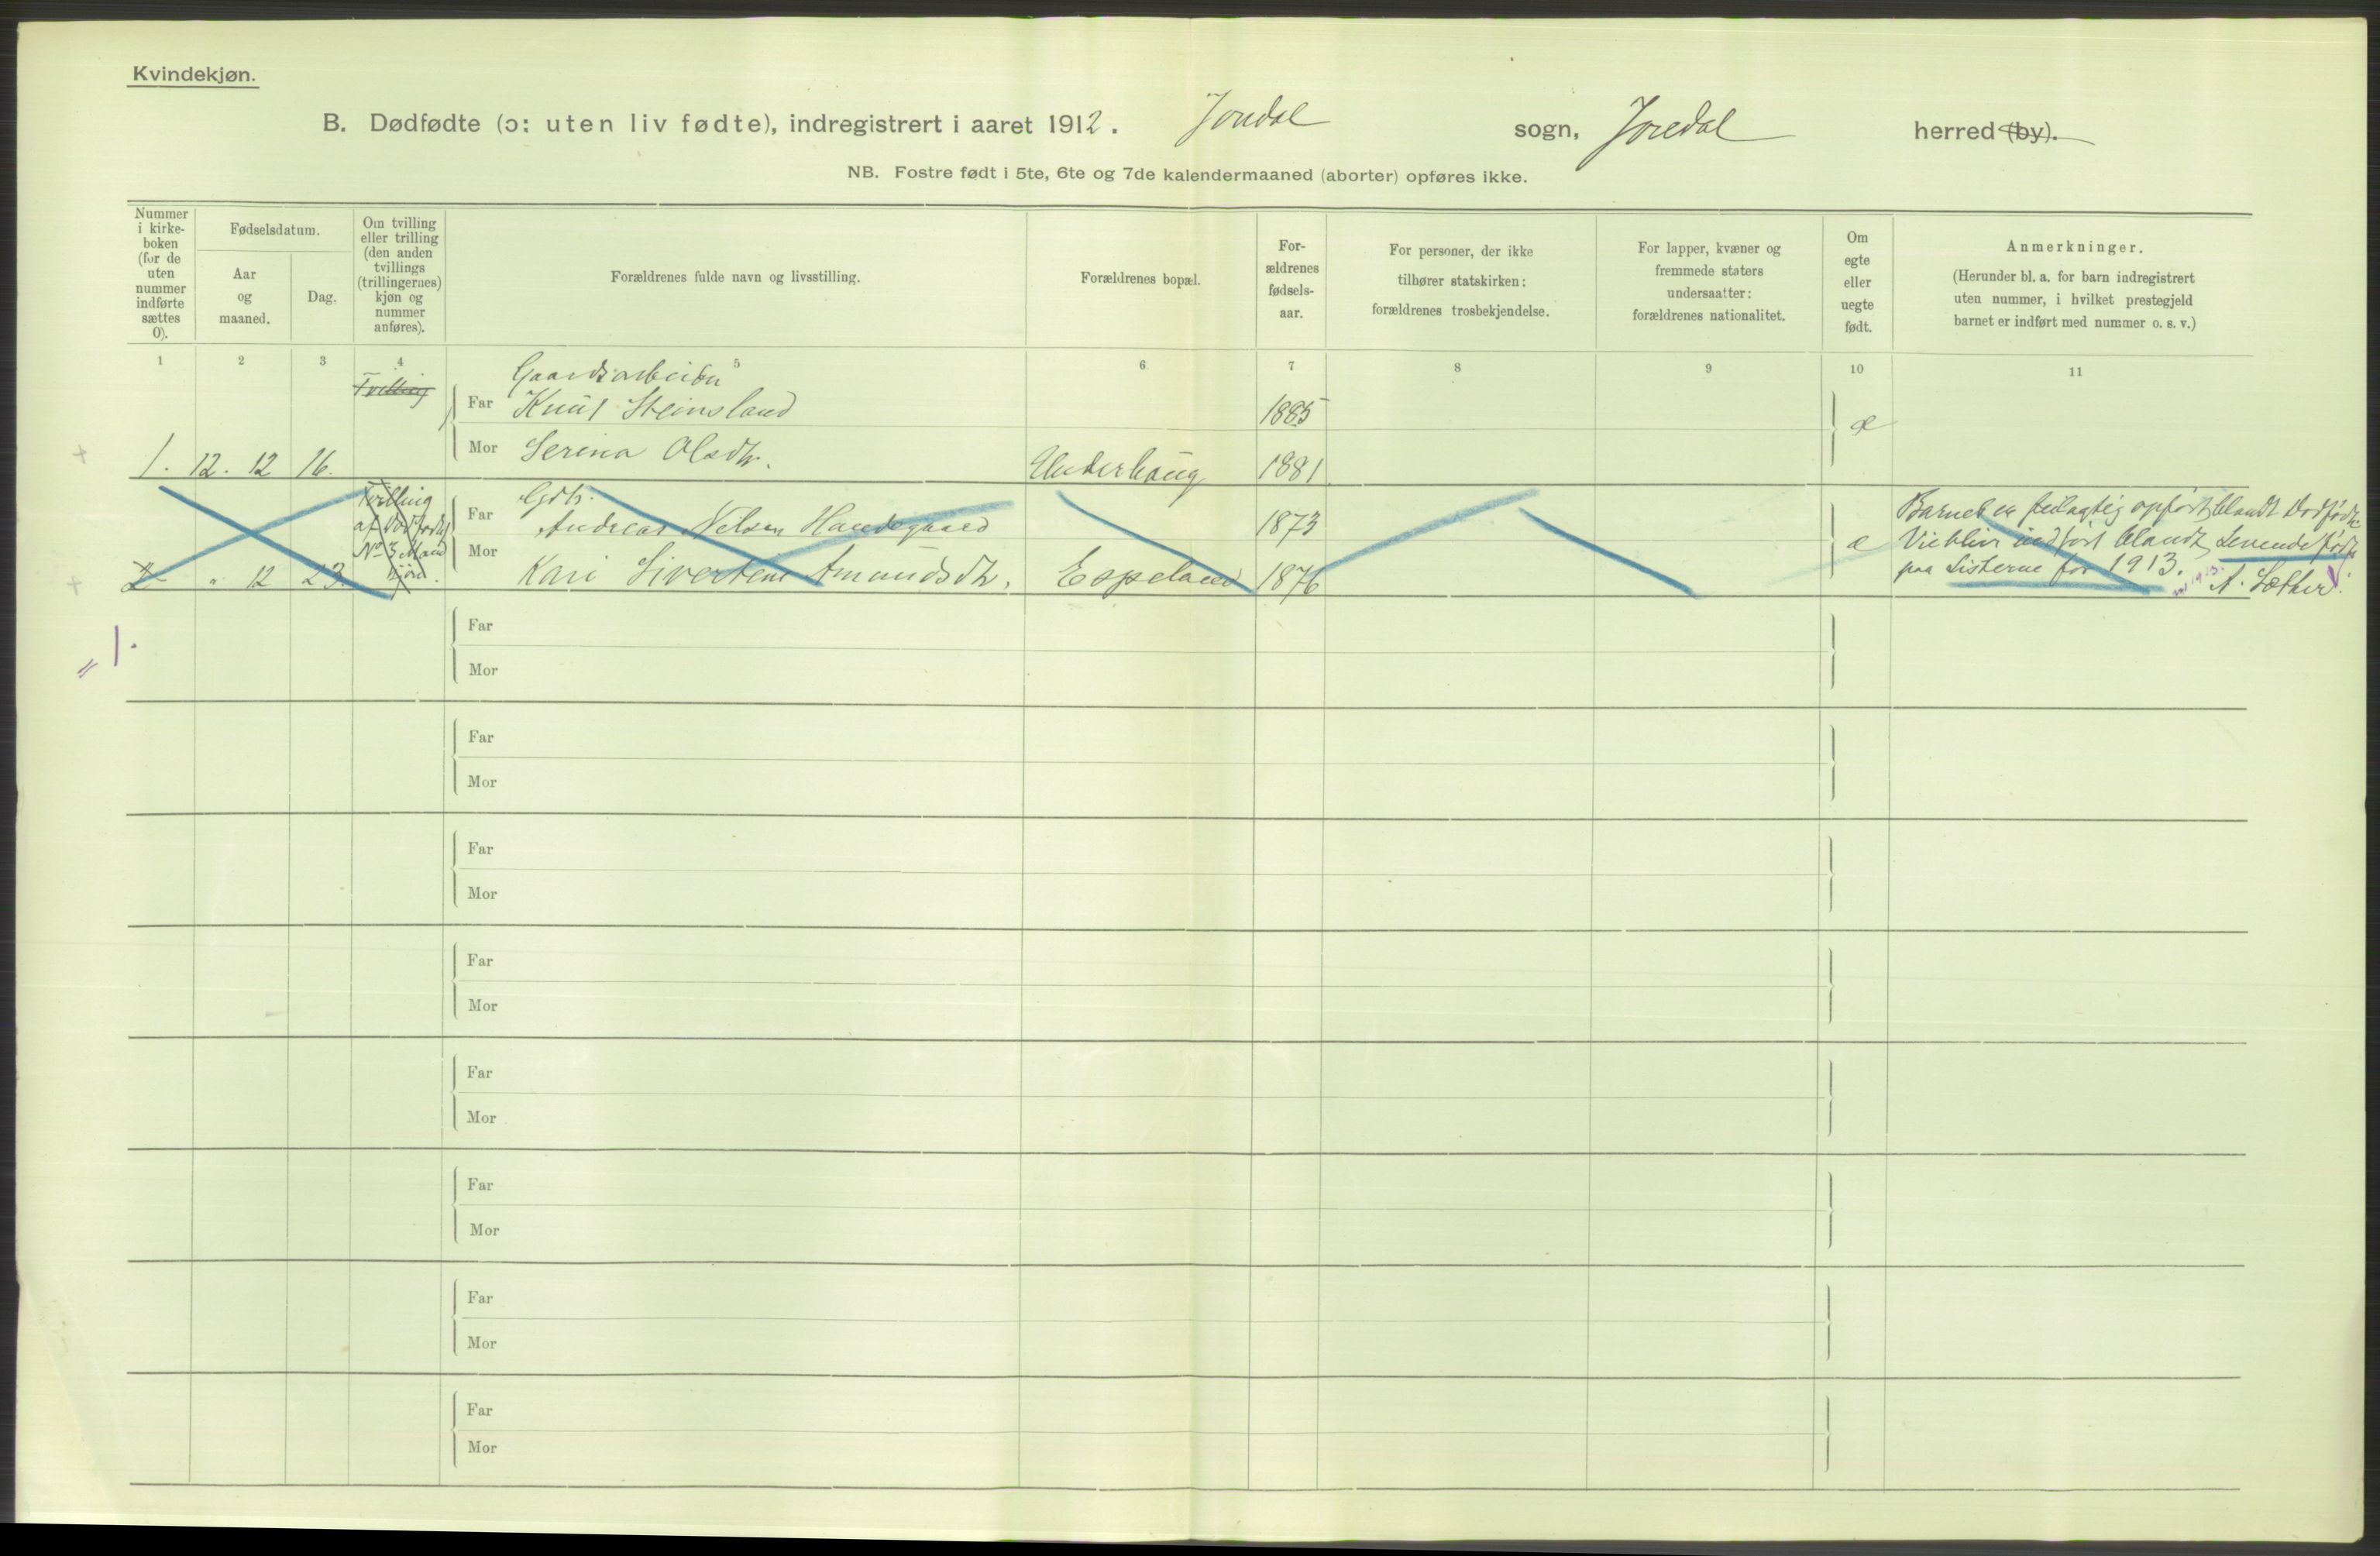 Kvindekjøn.
B. Dødfødte (ɔ: uten liv fødte), indregistrert i aaret 1912. Jondal sogn, Jondal herred (by).
NB. Fostre født i 5te, 6te og 7de kalendermaaned (aborter) opføres ikke.
Nummer
i kirke-
boken
(for de
uten
nummer
indførte
sættes
0).
Fødselsdatum.
Aar
og
maaned.
Dag.
Om tvilling
eller trilling
(den anden
tvillings
(trillingernes)
kjøn og
nummer
anføres).
Forældrenes fulde navn og livsstilling.
Forældrenes bopæl.
For-
ældrenes
fødsels-
aar.
For personer, der ikke
tilhører statskirken:
forældrenes trosbekjendelse.
For lapper, kvæner og
fremmede staters
undersaatter:
forældrenes nationalitet.
Om
egte
eller
uegte
født.
Anmerkninger.
(Herunder bl. a. for barn indregistrert
uten nummer, i hvilket prestegjeld
barnet er indført med nummer o. s. v.)
1 2 3 4 5 6 7 8 9 10 11
Tvilling
Gaardsarbeider
Far Knut Steinsland 1885
æ
Mor Serina Olsdtr.
1. 12. 12 16. Underhaug 1881
Tvilling
af Dødfødte
No 3 Mand
kjøn.
Gdb.
Far Andreas Nelsen Handegaard 1873
Mor
2 " 12 23. Kari Sivertine Amundsdtr. Espeland 1876
æ
Barnet er feilagtig opført blandt Dødfødte
Vi blir indført blandt Levende fødte
paa Listerne for 1913.
A. Sæther.
" 1.
Far
Mor
Far
Mor
Far
Mor
Far
Mor
Far
Mor
Far
Mor
Far
Mor
Far
Mor